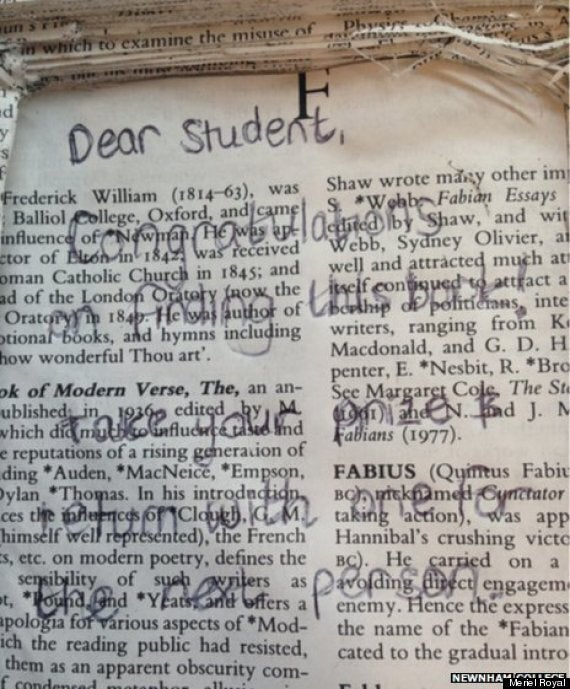 in which to examine the misuse of
F
Dear Student,
Congratulations
on finding this book!
take your prize &
return with one for
the next person.
Frederick William (1814–63), was
Balliol College, Oxford, and came
influence of *Newman. He was
ctor of Elton in 1842, was received
oman Catholic Church in 1845; and
ad of the London Oratory (now the
Oratory in 1849. He was author of
otional books, and hymns including
how wonderful Thou art'.
ok of Modern Verse, The, an an-
ublished in 1936, edited by M.
which did much to influence taste and
e reputations of a rising generation of
ding *Auden, *MacNeice, *Empson,
Dylan *Thomas. In his introduction,
ces the influences of *Clough, G. M.
himself well represented), the French
ts, etc. on modern poetry, defines the
sensibility of such writers as
ot, *Pound, and *Yeats and offers a
apologia for various aspects of *Mod-
ich the reading public had resisted,
them as an apparent obscurity com-
Shaw wrote many other im
S. *Webb, Fabian Essays
edited by Shaw, and wit
Webb, Sydney Olivier, a
well and attracted much at
itself continued to attract a
bership of politicians, inte
writers, ranging from K
Macdonald, and G. D. H
penter, E. *Nesbit, R. *Bro
See Margaret Cole, The St
(1961) and N. and J. M
Fabians (1977).
FABIUS (Quintus Fabiu
BC), nicknamed Cunctator
taking action), was app
Hannibal's crushing victo
BC). He carried on a
avoiding direct engagem
enemy. Hence the express
the name of the *Fabian
cated to the gradual intro
NEWNHAM COLLEGE
Meriel Royal